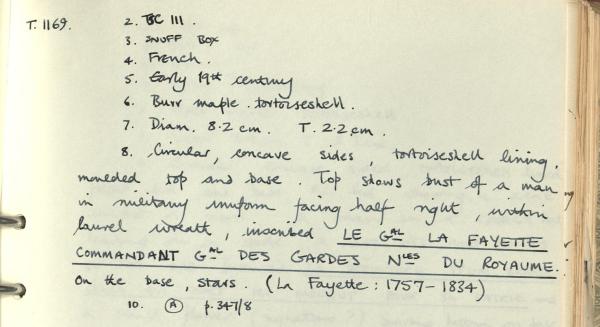 T. 1169. 2. TSC III.
3. SNUFF BOX
4. French.
5. Early 19th century
6. Burr maple. tortoiseshell.
7. Diam. 8.2 cm. T. 2.2 cm.
8. Circular, concave sides, tortoiseshell lining.
moulded top and base. Top shows bust of a man
in military uniform facing half right, within
laurel wreath, inscribed LE GAL LA FAYETTE
COMMANDANT GAL DES GARDES NLES DU ROYAUME.
On the base, stars. (La Fayette: 1757-1834)
10. A p.347/8